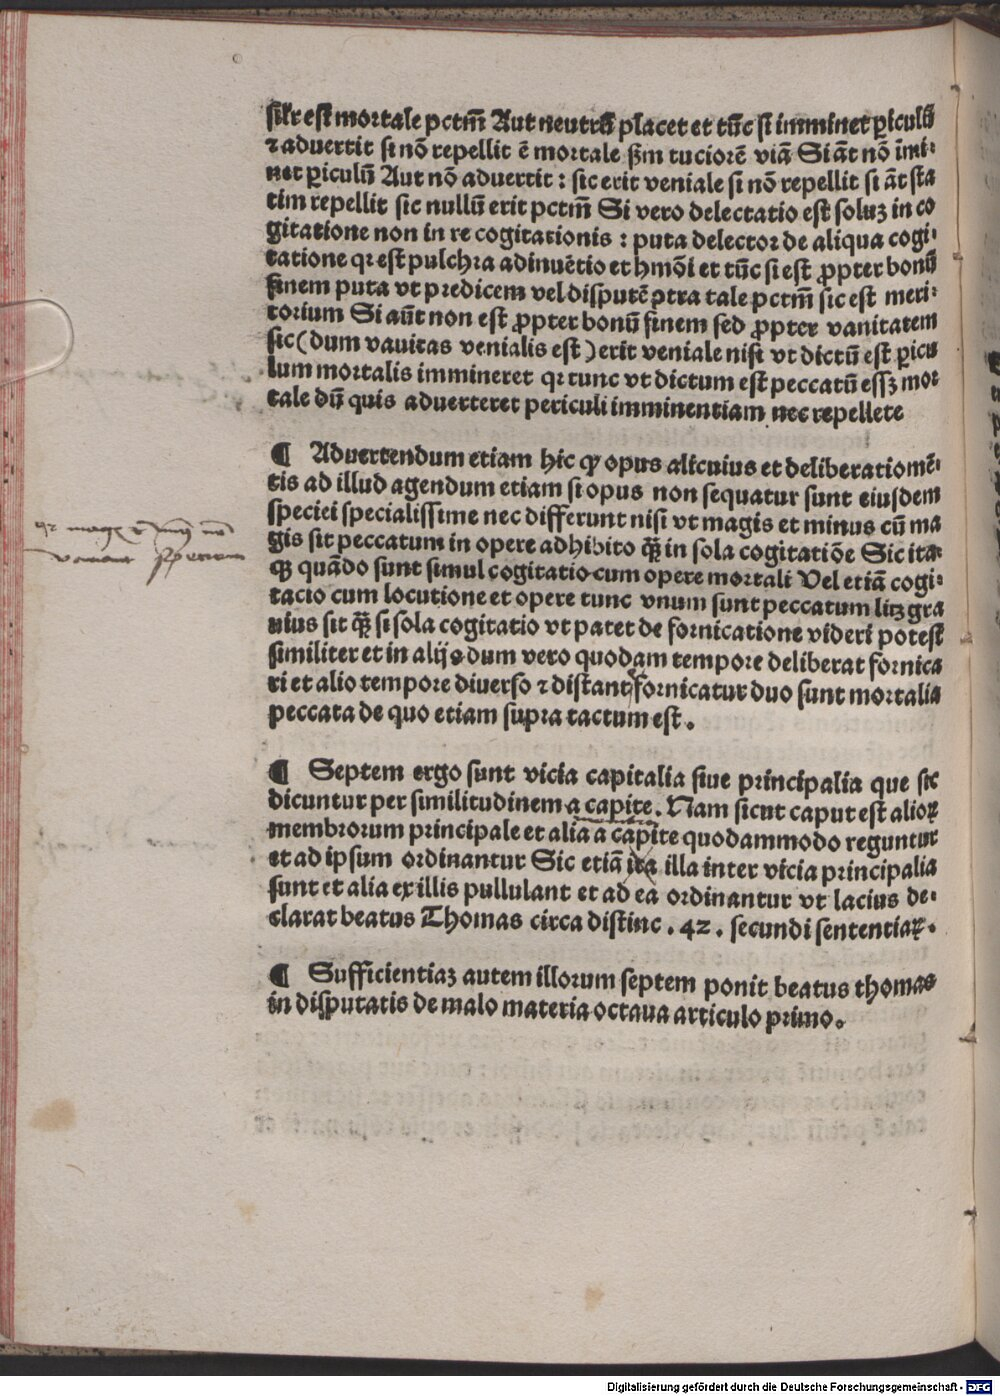 silr est mortale pctm̄ Aut neutrū placet et tūc si imminet ꝑiculū
⁊ aduertit si nō repellit ē mortale ẜm tuciorē viā Si āt nō īmi⸗
net ꝑiculū Aut nō aduertit : sic erit veniale si nō repellit si āt sta
tim repellit sic nullū erit pctm̄ Si vero delectatio est soluꝫ in co
gitatione non in re cogitationis : puta delector de aliqua cogi⸗
tatione qr est pulchra adinuētio et hmōi et tūc si est ꝓpter bonū
finem puta vt predicem vel disputē ꝯtra tale pctm̄ sic est meri⸗
torium Si aūt non est ꝓpter bonū finem sed ꝓpter vanitatem
sic (dum vauitas venialis est) erit veniale nisi vt dictū est ꝑicu
lum mortalis immineret qr tunc vt dictum est peccatū essꝫ mor
tale dū quis aduerteret periculi imminentiam nec repellete
¶ Aduertendum etiam hic ꝙ opus alicuius et deliberatiomē⸗
tis ad illud agendum etiam si opus non sequatur sunt eiusdem
speciei specialissime nec differunt nisi vt magis et minus cū ma
gis sit peccatum in opere adhibito qꝫ̄ in sola cogitatiōe Sic ita⸗
qꝫ quādo sunt simul cogitatio cum opere mortali Vel etiā cogi⸗
tacio cum locutione et opere tunc vnum sunt peccatum litꝫ gra
uius sit qꝫ̄ si sola cogitatio vt patet de fornicatione videri potest
similiter et in alijs dum vero quodam tempore deliberat fornica
ri et alio tempore diuerso ⁊ distant fornicatur duo sunt mortalia
peccata de quo etiam supra tactum est .
qr magꝫ et minꝰ nō
variant speciem
¶ Septem ergo sunt vicia capitalia siue principalia que sic
dicuntur per similitudinem a capite . Nam sicut caput est alioꝝ
membrorum principale et alia a capite quodammodo reguntur
et ad ipsum ordinantur Sic etiā ita illa inter vicia principalia
sunt et alia ex illis pullulant et ad ea ordinantur vt lacius de⸗
clarat beatus Thomas circa distinc . 42 . secundi sententiaꝝ .
¶ Sufficientiaꝫ autem illorum septem ponit beatus thomas
in disputatis de malo materia octaua articulo primo .
Digitalisierung gefördert durch die Deutsche Forschungsgemeinschaft - DFG